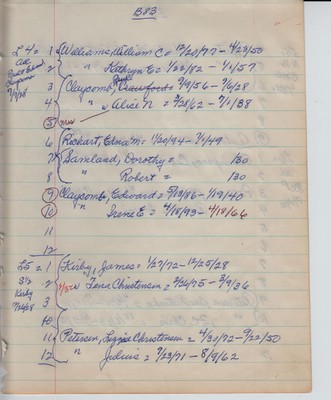 B83
L4 = 1 Williams, William C = 12/20/77 - 4/23/50
2 " Kathryn E = 1/22/82 - 1/1/57
3 Claycomb, Crawford = 9/9/56 - 7/6/28
4 " " Alice N = 3/28/62 - 7/1/38
5
6 Richart, Edna M: 1/20/94 - 7/1/49
7 Samland, Dorothy = 1/30
8 " Robert = 1/30
9 Claycomb, Edward = 5/13/86 - 1/19/40
10 " Irene E = 4/18/93 - 4/18/66
11
12
L5 = 1 Kirby, James = 1/27/72 - 12/25/28
S 1/2 2 " Lena Christensen = 2/26/75 - 3/9/36
Kirby 3
12/26/28 10
11 Petersen, Lizzie Christensen = 4/30/72 - 9/22/50
12 " Julius = 7/23/71 - 8/9/62